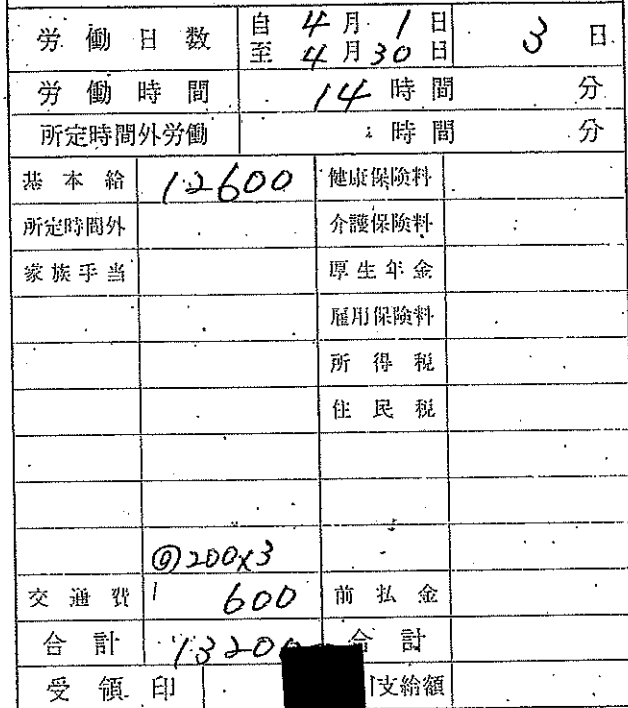 労働日数 自 4月1日 至 4月30日 3日
労働時間 14時間 分
所定時間外労働 時間 分
基本給 12600 健康保険料
所定時間外 介護保険料
家族手当 厚生年金
雇用保険料
所得税
住民税
@200×3
交通費 600 前払金
合計 13200 合計
受領印 支給額